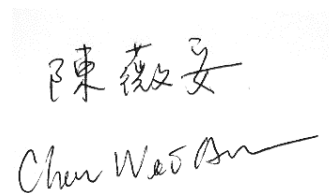 陳薇安
Chen Wei An